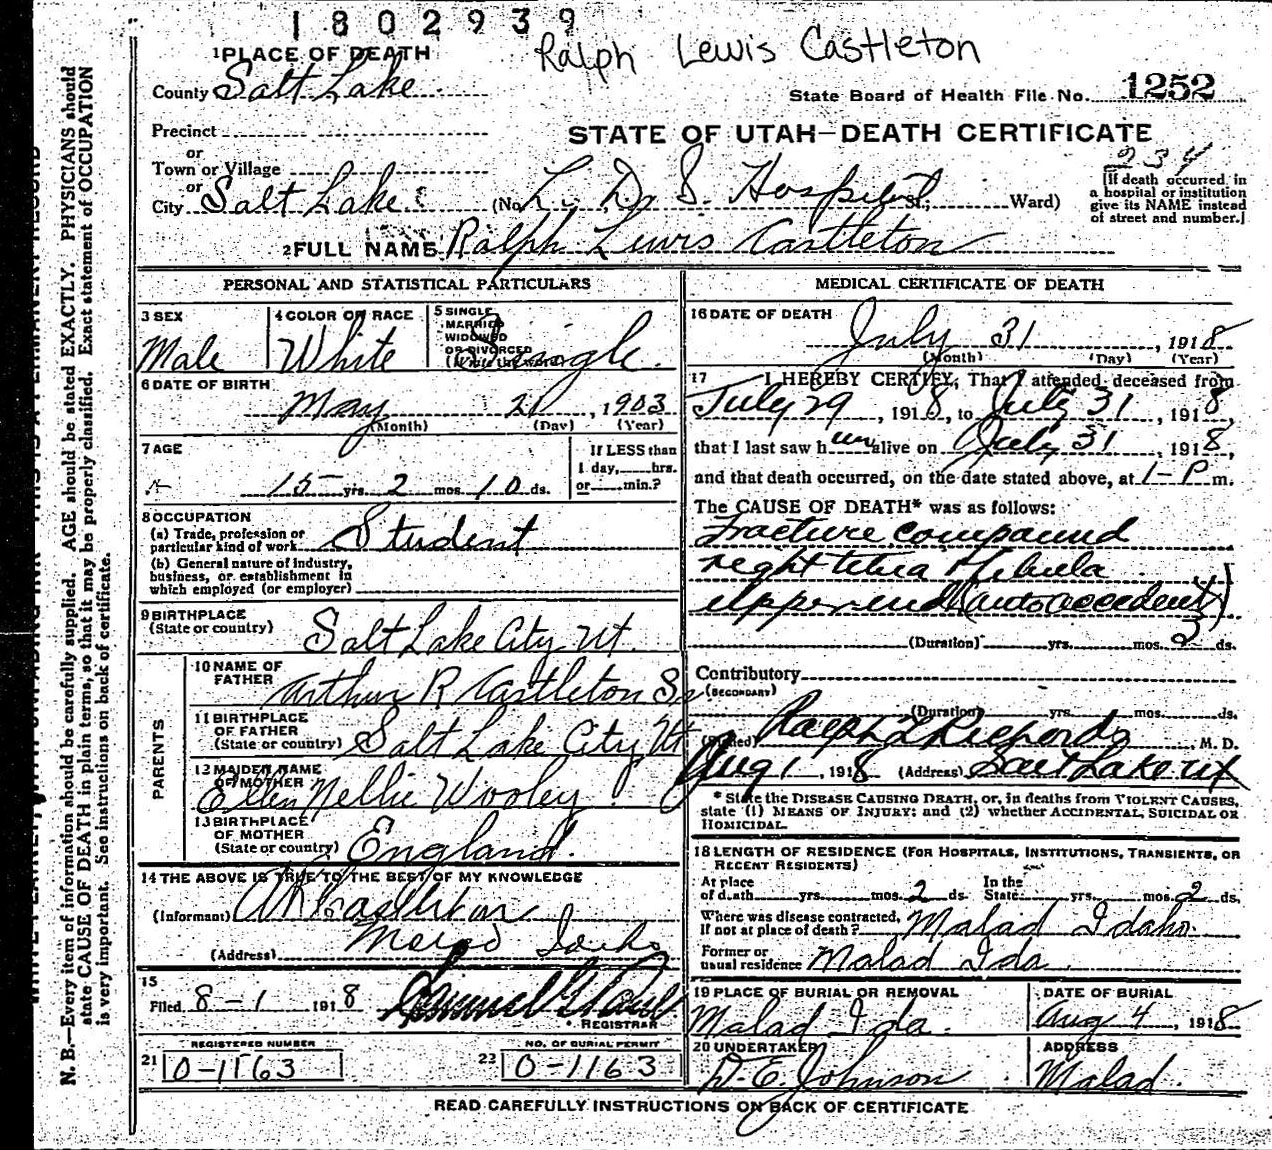 1802939
Ralph Lewis Castleton
1 PLACE OF DEATH
County Salt Lake
State Board of Health File No. 1252
Precinct
STATE OF UTAH—DEATH CERTIFICATE
or
Town or Village
234
or
City Salt Lake (No. L. D. S. Hospital St.; Ward)
[If death occurred in a hospital or institution give its NAME instead of street and number.]
2 FULL NAME Ralph Lewis Castleton
PERSONAL AND STATISTICAL PARTICULARS
3 SEX
Male
4 COLOR OR RACE
White
5 SINGLE
MARRIED
WIDOWED
OR DIVORCED
(Write the word)
Single.
6 DATE OF BIRTH
May 21, 1903
(Month) (Day) (Year)
7 AGE
15 yrs. 2 mos. 10 ds.
If LESS than
1 day, hrs.
or min.?
8 OCCUPATION
(a) Trade, profession or
particular kind of work Student
(b) General nature of industry,
business, or establishment in
which employed (or employer)
9 BIRTHPLACE
(State or country) Salt Lake City Ut.
PARENTS
10 NAME OF
FATHER Arthur R Castleton Sr
11 BIRTHPLACE
OF FATHER
(State or country) Salt Lake City Ut
12 MAIDEN NAME
OF MOTHER
Ellen Nellie Wooley
13 BIRTHPLACE
OF MOTHER
(State or country) England.
14 THE ABOVE IS TRUE TO THE BEST OF MY KNOWLEDGE
(Informant) A R Castleton
(Address) Malad Idaho
15
Filed 8-1 1918
REGISTRAR
REGISTERED NUMBER
21 0-1163
NO. OF BURIAL PERMIT
23 0-1163
MEDICAL CERTIFICATE OF DEATH
16 DATE OF DEATH
July 31, 1918
(Month) (Day) (Year)
17 I HEREBY CERTIFY, That I attended deceased from
July 29, 1918, to July 31, 1918
that I last saw him alive on July 31, 1918,
and that death occurred, on the date stated above, at 1-P m.
The CAUSE OF DEATH* was as follows:
Fracture compound
right tibia & fibula
upper end (auto accident)
(Duration) yrs. mos. 2 ds.
Contributory
(SECONDARY)
(Duration) yrs. mos. ds.
(Signed) Ralph , M. D.
Aug 1, 1918 (Address) Salt Lake Ut
* State the DISEASE CAUSING DEATH, or, in deaths from VIOLENT CAUSES,
state (1) MEANS OF INJURY; and (2) whether ACCIDENTAL, SUICIDAL OR
HOMICIDAL.
18 LENGTH OF RESIDENCE (FOR HOSPITALS, INSTITUTIONS, TRANSIENTS, OR
RECENT RESIDENTS)
At place
of death yrs. mos. 2 ds. In the
State yrs. mos. 2 ds.
Where was disease contracted,
If not at place of death? Malad Idaho.
Former or
usual residence Malad Ida
19 PLACE OF BURIAL OR REMOVAL
Malad Ida.
DATE OF BURIAL
Aug 4, 1918
20 UNDERTAKER
D. E. Johnson
ADDRESS
Malad.
READ CAREFULLY INSTRUCTIONS ON BACK OF CERTIFICATE
N. B.—Every item of information should be carefully supplied. AGE should be stated EXACTLY. PHYSICIANS should
state CAUSE OF DEATH in plain terms, so that it may be properly classified. Exact statement of OCCUPATION
is very important. See instructions on back of certificate.